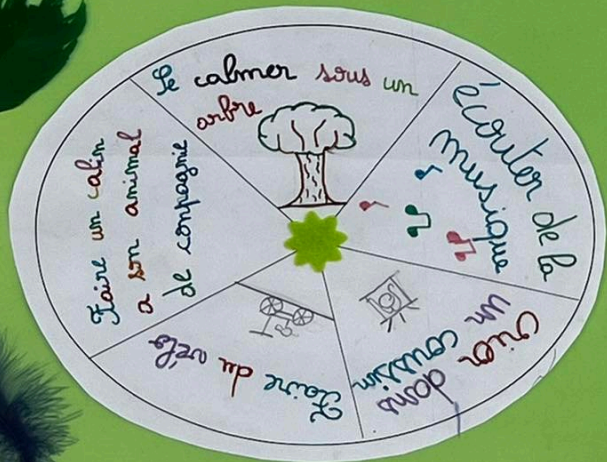 Se calmer sous un
arbre
écouter de la
musique
crier dans
un coussin
Faire du vélo
Faire un calin
a son animal
de compagnie